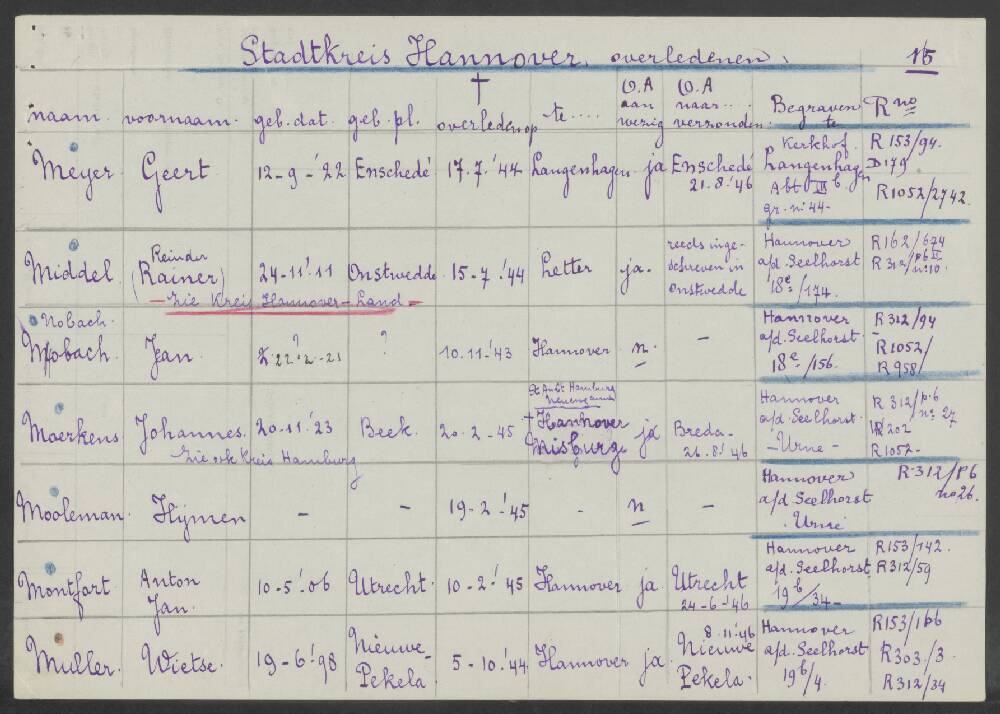 Stadtkreis Hannover. overledenen. 15
naam. voornaam. geb. dat. geb. pl. † overleden op te .... O.A aan wezig O.A naar.... verzonden. Begraven te R no
Meyer Geert 12-9-'22 Enschedé 17.7.'44 Langenhagen. ja Enschedé 21.8.'46 Kerkhof. Langenhagen Abt III b. gr. no 44- R 153/94. D 179 R1052/2742.
Middel (Reinder Rainer) 24-11-'11 Onstwedde 15-7.'44 Letter ja. reeds inge- schreven in onstwedde Hannover a/d. Seelhorst 18e/174. R162/674 R 312/p6 II no 10.
- Zie Kreis Hannover-Land -
Nobach.
Mobach. Jan. 22?2-21 ? 10.11-'43 Hannover n. - Hannover a/d. Seelhorst 18e/156. R 312/94 R1052/ R 958/
Moerkens Johannes. 20.11.'23 Beek. 20.2-45 St Amt Hamburg Neuengamme † Hannover Misburg. ja Breda- 26.8.'46 Hannover a/d Seelhorst. -Urne- R 312/p.6 no 27 202 R 1052-
Zie ook Kreis Hamburg
Mooleman. Hijmen - - 19-2-'45 - n - Hannover a/d Seelhorst Urne R-312/p6 no 26.
Montfort Anton Jan. 10-5.'06 Utrecht. 10-2.'45 Hannover ja. Utrecht 24-6-'46 Hannover a/d. Seelhorst 19b/34- R153/142. R312/59
Muller. Wietse. 19-6.'98 Nieuwe- Pekela. 5-10.'44 Hannover ja. 8.11.'46 Nieuwe Pekela. Hannover a/d. Seelhorst 19b/4. R153/166 R303./3. R312/34